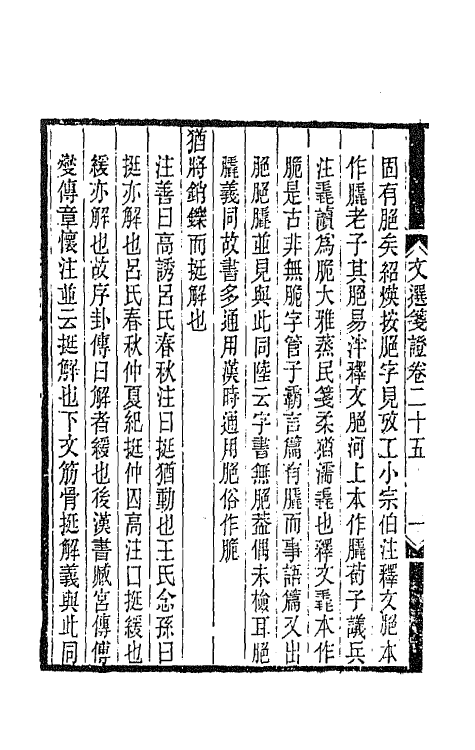 文選箋證卷二十五
一
固有脃矣紹煐按脃字見攷工小宗伯注釋文脃本
作膬老子其脃易泮釋文脃河上本作膬荀子議兵
注毳讀為脆大雅蒸民箋柔猶濡毳也釋文毳本作
脆是古非無脆字管子霸言篇有膬而事語篇又出
脃脃膬並見與此同陸云字書無脃葢偶未檢耳脃
膬義同故書多通用漢時通用脃俗作脆
猶將銷鑠而挺解也
注善曰高誘呂氏春秋注曰挺猶動也王氏念孫曰
挺亦解也呂氏春秋仲夏紀挺仲囚高注曰挺緩也
緩亦解也故序卦傳曰解者緩也後漢書臧宮傳傅
燮傳章懷注並云挺解也下文筋骨挺解義與此同